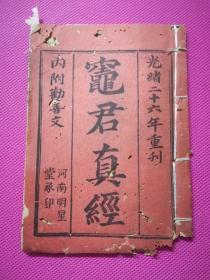 光緒二十六年重刊
竈君真經
內附勸善文
河南明星
堂承印